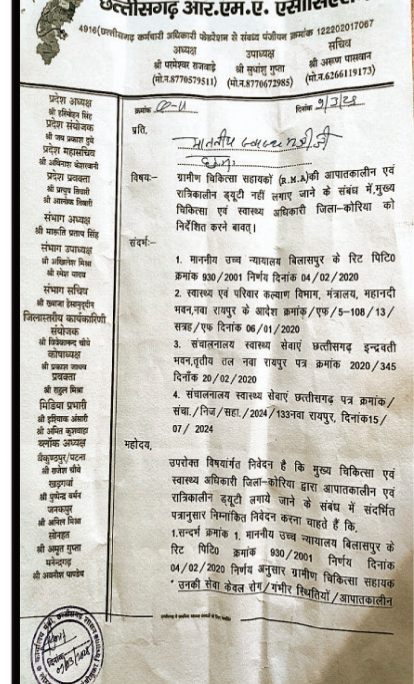 छत्तीसगढ़ आर.एम.ए. एसोसिएश
4916(छत्तीसगढ़ कर्मचारी अधिकारी फेडरेशन से संबद्ध पंजीयन क्रमांक 122202017067
अध्यक्ष
श्री परमेश्वर राजवाड़े
(मो.न.8770579511)
उपाध्यक्ष
श्री सुधांशु गुप्ता
(मो.न.8770672985)
सचिव
श्री अरूण पासवान
(मो.न.6266119173)
प्रदेश अध्यक्ष
श्री हरिमोहन सिंह
प्रदेश संयोजक
श्री जय प्रकाश दुबे
प्रदेश महासचिव
श्री अविनाश केशरवानी
प्रदेश प्रवक्ता
श्री प्रत्युष तिवारी
श्री आलोक तिवारी
संभाग अध्यक्ष
श्री मारूति प्रताप सिंह
संभाग उपाध्यक्ष
श्री अखिलेश मिश्रा
श्री रमेश यादव
संभाग सचिव
श्री ख्वाजा हेसामुद्दीन
जिलास्तरीय कार्यकारिणी
संयोजक
श्री विवेकानन्द चौबे
कोषाध्यक्ष
श्री प्रकाश जाधव
प्रवक्ता
श्री राहुल मिश्रा
मिडिया प्रभारी
श्री इश्तियाक अंसारी
श्री अमित कुशवाहा
ब्लॉक अध्यक्ष
बैकुण्ठपुर/पटना
श्री राजेश चौबे
खड़गवां
श्री पुष्पेन्द्र बर्मन
जनकपुर
श्री अनिल मिश्रा
सोनहत
श्री अमृत गुप्ता
मनेन्द्रगढ़
श्री अवनीश पाण्डेय
क्रमांक दिनांक
प्रति,
माननीय स्वास्थ्य मंत्री जी
विषय:- ग्रामीण चिकित्सा सहायकों (R.M.A)की आपातकालीन एवं
रात्रिकालीन ड्यूटी नहीं लगाए जाने के संबंध में,मुख्य
चिकित्सा एवं स्वास्थ्य अधिकारी जिला-कोरिया को
निर्देशित करने बावत्।
संदर्भ:-
1. माननीय उच्च न्यायालय बिलासपुर के रिट पिटि0
क्रमांक 930/2001 निर्णय दिनांक 04/02/2020
2. स्वास्थ्य एवं परिवार कल्याण विभाग, मंत्रालय, महानदी
भवन,नवा रायपुर के आदेश क्रमांक/एफ/5-108/13/
सत्रह/एफ दिनांक 06/01/2020
3. संचालनालय स्वास्थ्य सेवाएं छत्तीसगढ़ इन्द्रवती
भवन,तृतीय तल नवा रायपुर पत्र क्रमांक 2020/345
दिनाँक 20/02/2020
4. संचालनालय स्वास्थ्य सेवाएं छत्तीसगढ़ पत्र क्रमांक/
संचा./निज/सहा./2024/133नवा रायपुर, दिनांक15/
07/ 2024
महोदय,
उपरोक्त विषयांर्गत निवेदन है कि मुख्य चिकित्सा एवं
स्वास्थ्य अधिकारी जिला-कोरिया द्वारा आपातकालीन एवं
रात्रिकालीन ड्यूटी लगाये जाने के संबंध में संदर्भित
पत्रानुसार निम्नांकित निवेदन करना चाहते हैं कि.
1.सन्दर्भ क्रमांक 1. माननीय उच्च न्यायालय बिलासपुर के
रिट पिटि0 क्रमांक 930/2001 निर्णय दिनांक
04/02/2020 निर्णय अनुसार ग्रामीण चिकित्सा सहायक
" उनकी सेवा केवल रोग/गंभीर स्थितियों /आपातकालीन